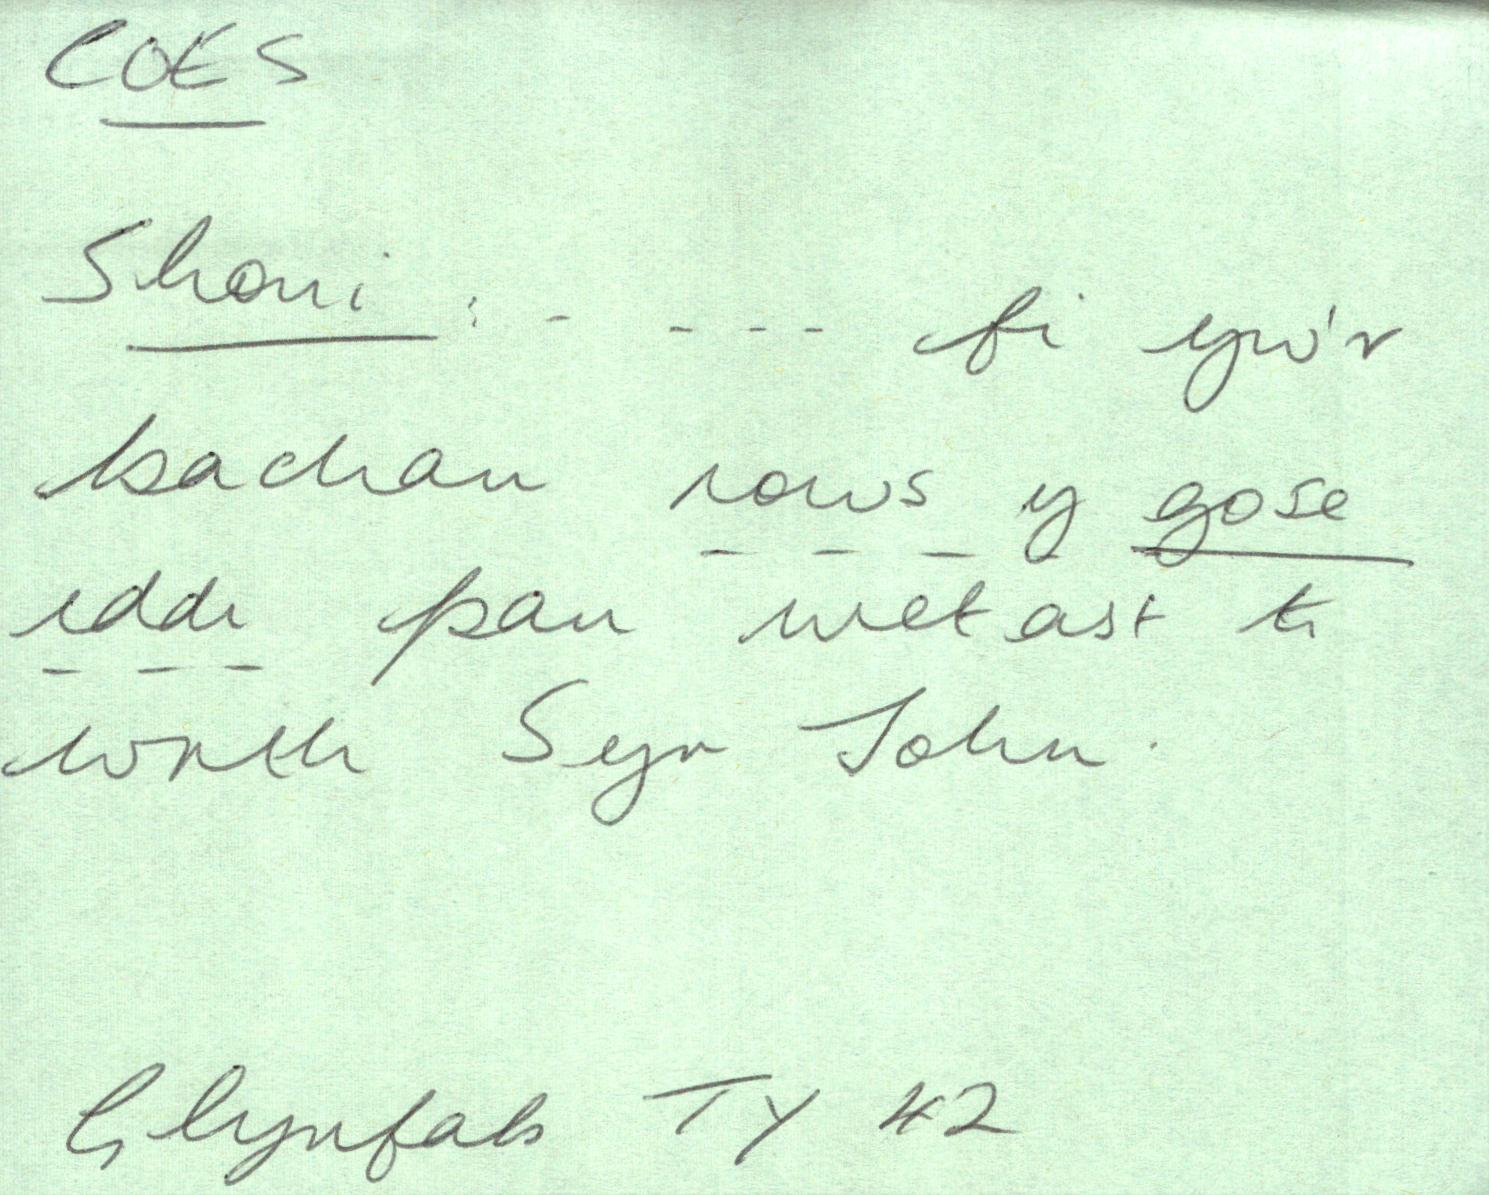 COES
Shoni : - - - - fi yw'r
bachan rows y gose
iddi pan wetast ti
wrth Syr John.
Glynfab TY 42